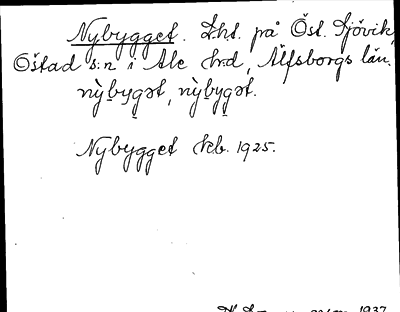 Nybygget. Lht. på Öst. Sjövik,
Östad s:n i Ale hrd, Älfsborgs län.
nỳbygət, nỳbygət.
Nybygget Jrb. 1925.
1937